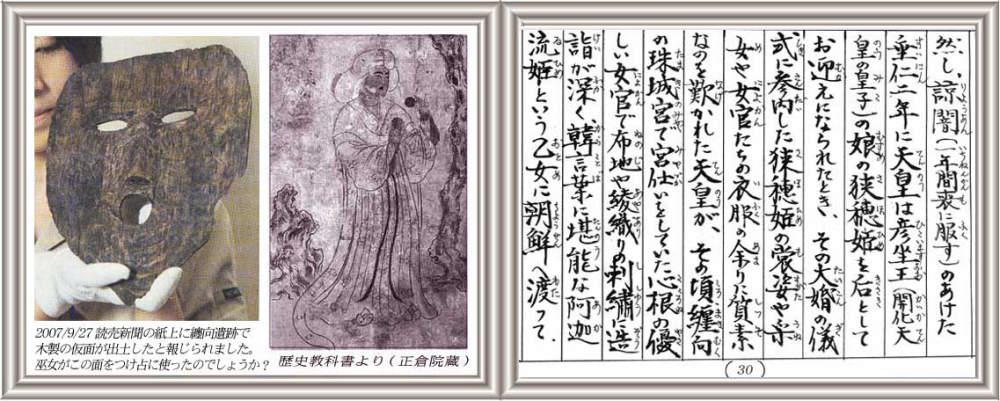 2007/9/27 読売新聞の紙上に纏向遺跡で
木製の仮面が出土したと報じられました。
巫女がこの面をつけ占に使ったのでしょうか？
歴史教科書より（正倉院蔵）
然し、諒闇（一年間喪に服す）のあけた
垂仁二年に天皇は彦坐王（開化天
皇の皇子）の娘の狭穂姫を后として
お迎えになられたとき、その大婚の儀
式に参内した狭穂姫の裳姿や采
女や女官たちの衣服の余りに質素
なのを歎かれた天皇が、その頃纏向
の珠城宮で宮仕いをしていた心根の優
しい女官で布地や綾織りの刺繍に造
詣が深く、韓言葉に堪能な阿迦
流姫という乙女に朝鮮へ渡って、
(30)